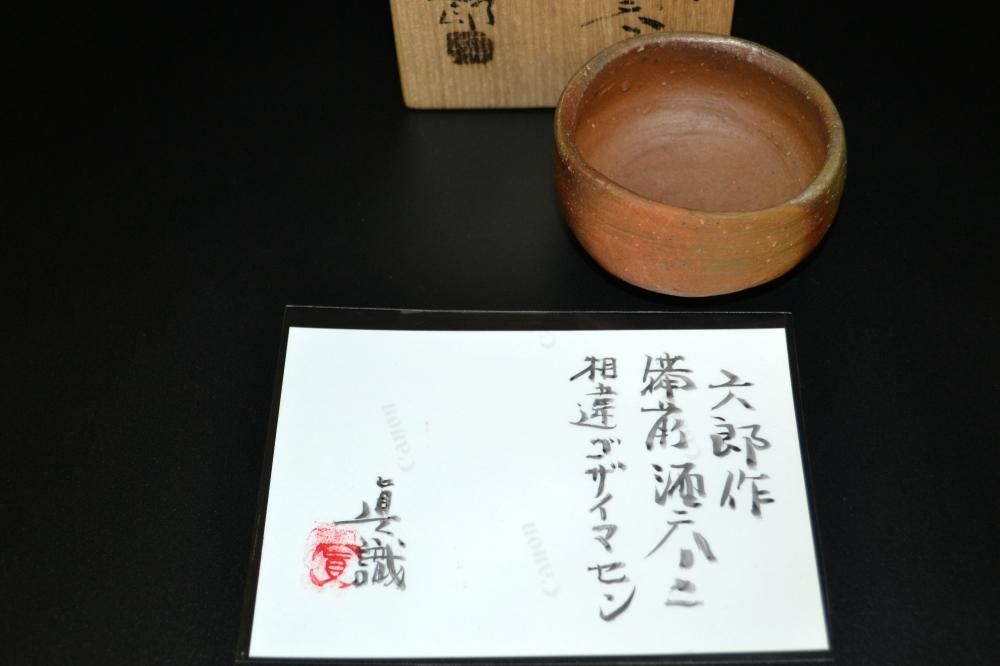 六郎作
備前酒呑ニ
相違ゴザイマセン
眞識
郎
Canon
Canon